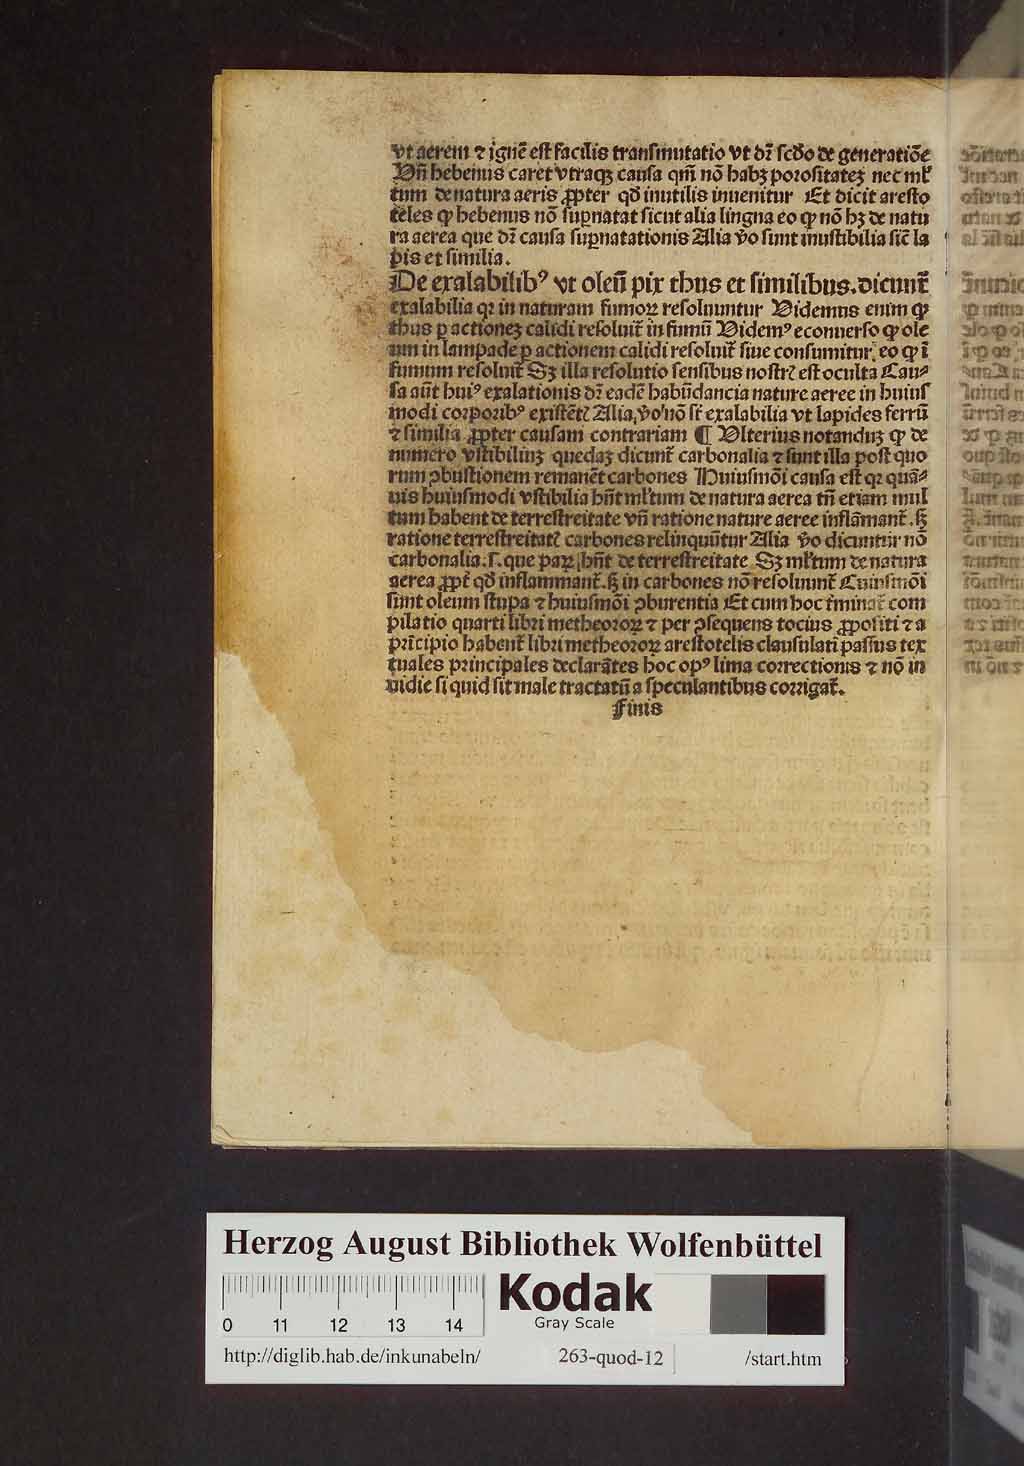 vt aerem ⁊ ignē est facilis transmutatio vt dr̄ scdo de generatiōe
Vn̄ hebenus caret vtraqꝫ causa qm̄ nō habꝫ porositateꝫ nec ml̄
tum de natura aeris ꝓpter qd̄ inutilis inuenitur Et dicit aresto
teles ꝙ hebenus nō suꝑnatat sicut alia lingna eo ꝙ nō hꝫ de natu
ra aerea que dr̄ causa suꝑnatationis Alia v̄o sunt inustibilia sic̄ la
pis et similia.
De exalabilibꝰ vt oleū pix thus et similibus. dicunt̄
exalabilia qꝛ in naturam fumoꝝ resoluuntur Videmus enim ꝙ
thus ꝑ actioneꝫ calidi resoluit̄ in fumū Videmꝰ econuerso ꝙ ole
um in lampade ꝑ actionem calidi resoluit̄ siue consumitur, eo ꝙ ī
fumum resoluit̄ Sꝫ illa resolutio sensibus nostrꝭ est oculta Cau⸗
sa aūt huiꝰ exalationis dr̄ eadē habūdancia nature aeree in huius
modi corporibꝰ existētꝭ Alia v̄o nō st̄ exalabilia vt lapides ferrū
⁊ similia ꝓpter causam contrariam ¶ Vlterius notanduꝫ ꝙ de
numero vstibiliuꝫ quedaꝫ dicunt̄ carbonalia ⁊ sunt illa post quo
rum ꝯbustionem remanēt carbones Huiusmōi causa est qꝛ quā⸗
uis huiusmodi vstibilia hn̄t ml̄tum de natura aerea tn̄ etiam mul
tum habent de terrestreitate vn̄ ratione nature aeree inflāmant̄. sꝫ
ratione terrestreitatꝭ carbones relinquūtur Alia v̄o dicuntur nō
carbonalia. s. que paꝝ hn̄t de terrestreitate Sꝫ ml̄tum de natura
aerea ꝓpt̄ qd̄ inflammant̄. sꝫ in carbones nō resoluunt̄ Cuiusmōi
sunt oleum stupa ⁊ huiusmōi ꝯburentia Et cum hoc t̄minat̄ com
pilatio quarti libri metheoroꝝ ⁊ per ꝯsequens tocius ꝓpositi ⁊ a
prīcipio habent̄ libri metheoroꝝ arestotelis clausulati passus tex
tuales principales declarātes hoc opꝰ lima correctionis ⁊ nō in
uidie si quid sit male tractatū a speculantibus corrigat̄.
Finis
Herzog August Bibliothek Wolfenbüttel
0 11 12 13 14
Kodak
Gray Scale
http://diglib.hab.de/inkunabeln/ 263-quod-12 /start.htm